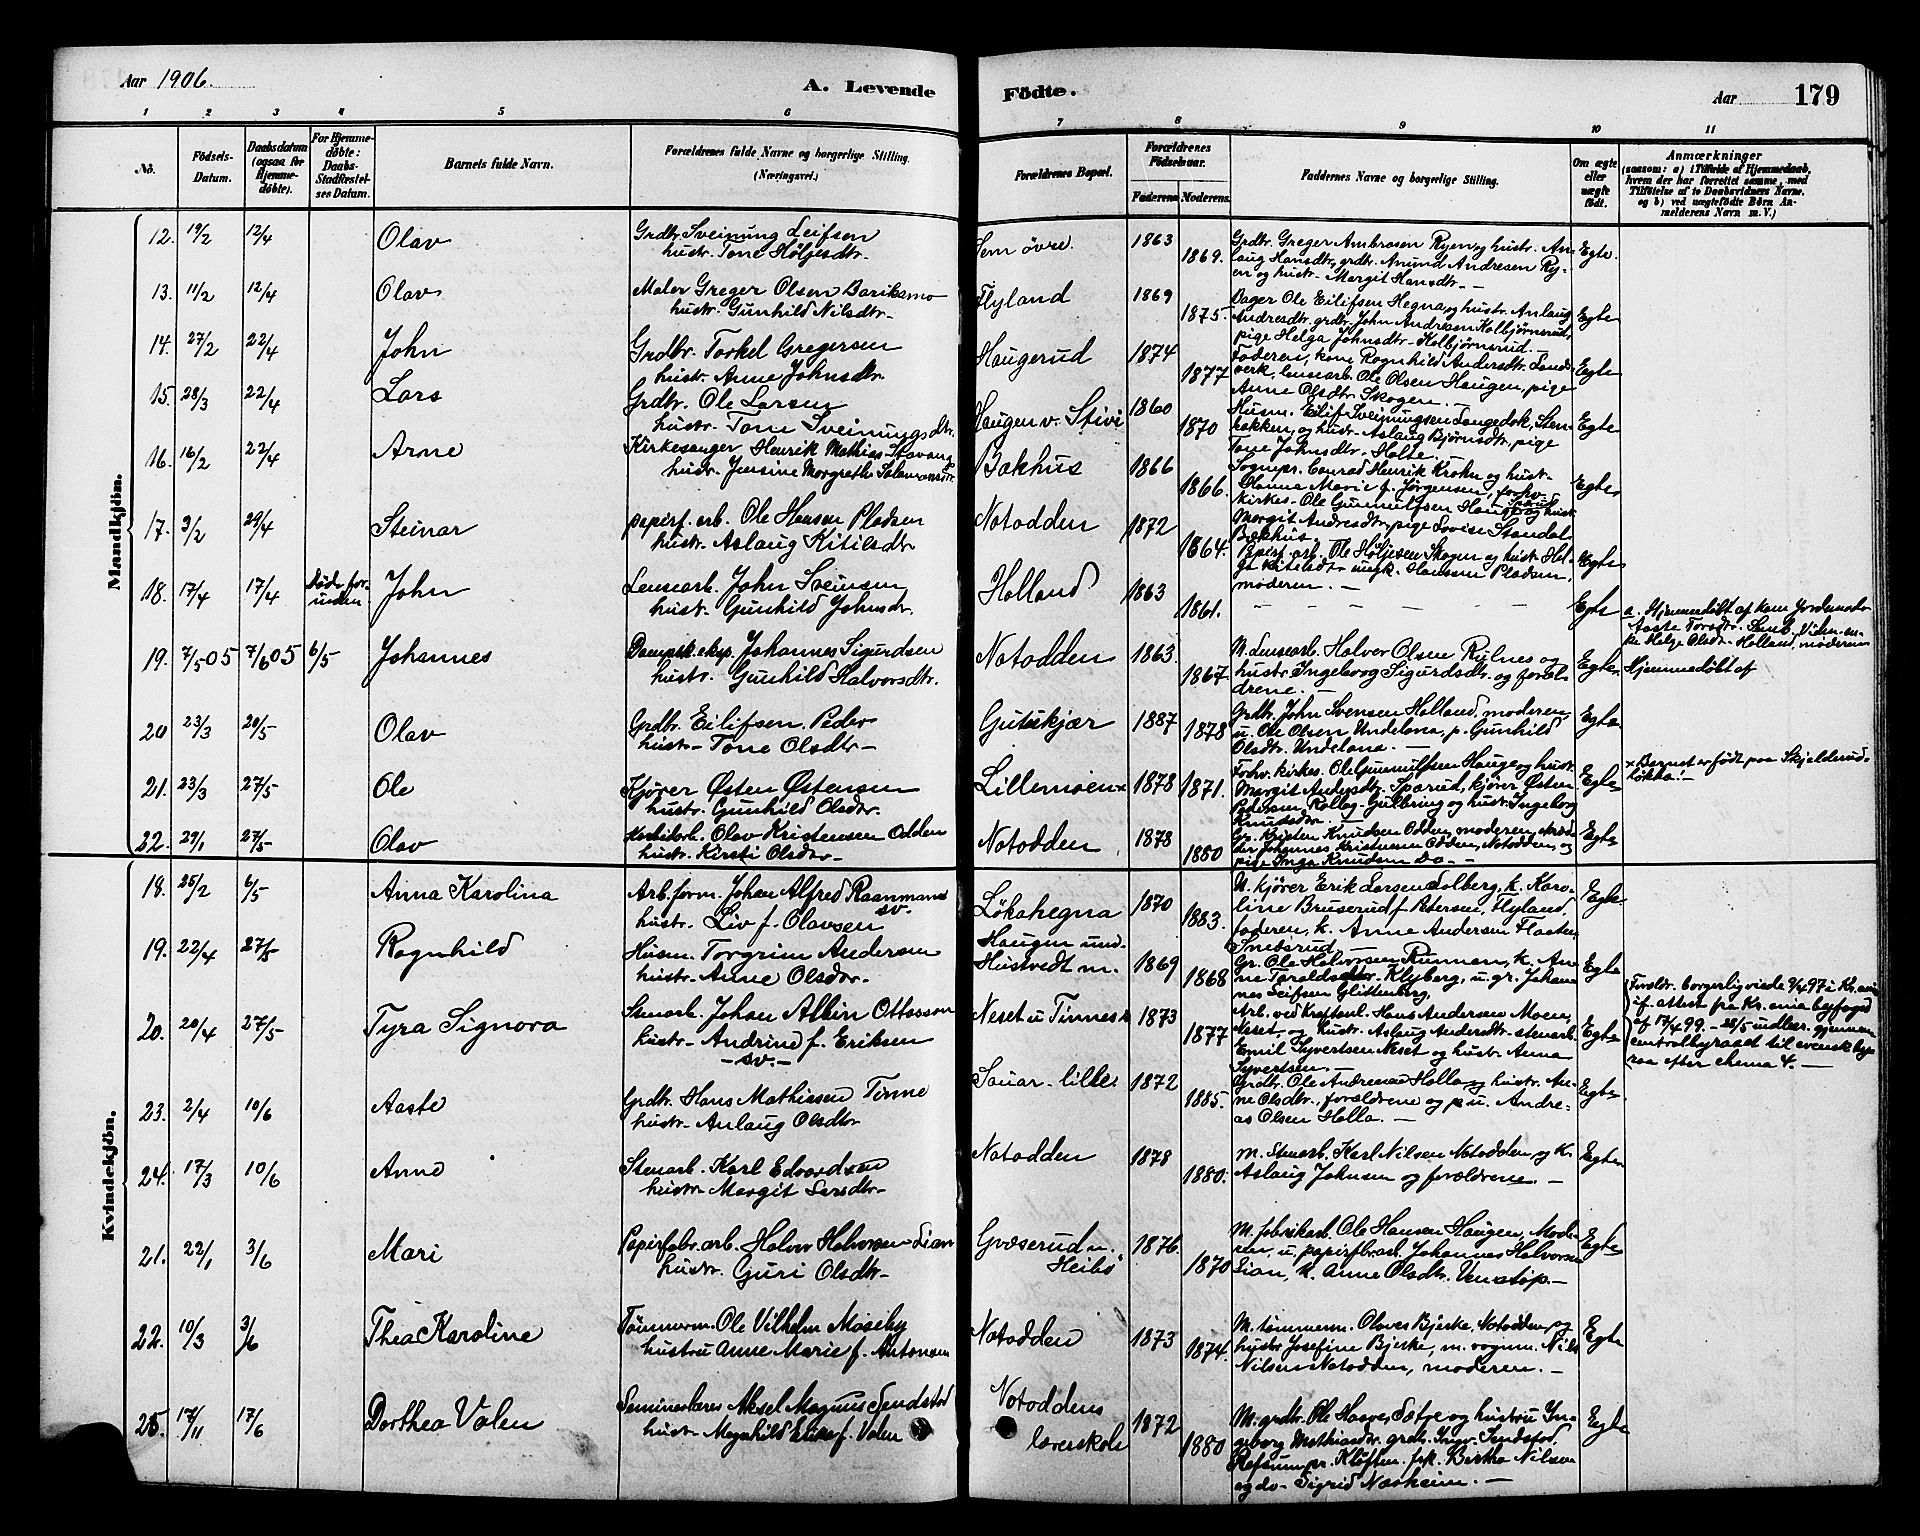 Aar 1906.
A. Levende
Fødte.
Aar 179
1 2 3 4 5 6 7 8 9 10 11
No.
Fødsels-Datum.
Daabsdatum (ogsaa for Hjemmedøbte).
For Hjemmedøbte: Daabs-Stadfæstelses Datum.
Barnets fulde Navn.
Forældrenes fulde Navne og borgerlige Stilling.
(Næringsvei.)
Forældrenes Bopæl.
Forældrenes Fødselsaar.
Faderens. Moderens.
Faddernes Navne og borgerlige Stilling.
Om ægte eller uægte født.
Anmærkninger
(saasom: a) i Tilfælde af Hjemmedaab, hvem der har forrettet samme, med Tilføielse af to Daabsvidners Navne. og b) ved uægtefødte Børn Anmelderens Navn m. V.)
Mandkjön.
12. 19/2 12/4 Olav
Grdbr. Sveinung Leifsen
hustr. Tone Høljesdtr.
Sem øvre. 1863 1869.
Grdbr. Greger Ambrosen Ryen og hustr. An-
laug Hansdtr, grdbr. Anund Andresen Ry-
en og hustr. Margit Hansdtr. —
Egte.
13. 11/2 12/4 Olav
Maler Greger Olsen Bariksmo
hustr. Gunhild Nilsdtr.
Flyland 1869 1875.
Bager Ole Eilifsen Hegna og hustr. Anlaug
Andresdtr. grdbr. John Andresen Kolbjørnsrud,
pige Helga Johnsdtr. Kolbjørnsrud. —
Egte
14. 27/2 22/4 John
Grdbr. Torkel Gregersen
hustr. Anne Johnsdtr.
Haugerud 1874 1877
Faderen, kone Ragnhild Andersdtr. Land-
verk, lensearb. Ole Olsen Haugen, pige
Anne Olsdtr. Skogen. —
Egte
15. 28/3 22/4 Lars
Grdbr. Ole Larsen
hustr. Tone Sveinungsdtr.
Haugen v. Stivi 1860 1870
Husm. Eilif Sveinungsen Langedok, Sten-
bakken, og hustr. Aslaug Bjørnsdtr, pige
Tone Johnsdtr. Holte. —
Egte
16. 16/2 22/4 Arne
Kirkesanger Henrik Mathias Stavang
hustr. Jensine Margrethe
Bakhus 1866 1866.
Sognpr. Conrad Henrik Krohn og hust-
Olanna Marie f. Jørgensen, forhv.
kirkes. Ole Gunnulfsen Hauge og hustr.
Margit Andresdtr, pige Lovise Standal
Bækhus.
Egte
17. 3/2 29/4 Steinar
papirf. arb. Ole Hansen Pladsen
hustr. Aslaug Kitilsdtr
Notodden 1872 1864.
Papirf. arb. Ole Høljesen Skogen og hustr. Hel-
ga Kitelsdtr ungk. Hansen Pladsen,
moderen. —
Egte
18. 17/4 17/4 Døde for-
uden John
Lensearb. John Sveinsen
hustr. Gunhild Johnsdr.
Holland 1863 1861.
— — — — — — —
Egte
a. Hjemmedøbt af kone Jordemoder
Aaste Torsdtr. Semb. Vidn. en-
ke Helge Olsdtr. Holland, moderen
19. 7/5 05 7/6 05 6/5 Johannes
Dampsk. eksp. Johannes Sigurdsen
hustr. Gunhild Halvorsdtr.
Notodden 1863. 1867.
M. lensearb. Halvor Olsen Rylnes og
hustr Ingeborg Sigurdsdtr. og foræl-
drene. —
Egte Hjemmedøbt af
20 23/3 20/5 Olav
Grdbr. Eilifsen Peder
hustr— Tone Olsdtr—
Gutukjær 1887 1878
Grdbr. John Svensen Holland, moderen
u. Ole Olsen Undelona, p. Gunhild
Olsdtr. Undelona. —
Egte
21. 23/3 27/5 Ole
Kjører Østen Østensen
hustr. Gunhild Olsdtr.
Lillemoen × 1878 1871.
Forhv. kirkes. Ole Gunnulfsen Hauge og hustr
Margit Andresdtr. Sparud, kjører Østen
Pedersen Rollag-Gulbring og hustr. Ingeborg
Knudsdtr. —
Egte × Barnet er født paa Skjelderud-
løkka! —
22. 29/1 27/5 Olav
arb. Olav Kristensen Odden
hustr. Kirsti Olsdtr—
Notodden 1878 1880
Gr. Kristen Knudsen Odden, moderen, skræd-
der Johannes Kristensen Odden, Notodden, og
pige Inga Knudsen Do. —
Egte
Kvindekjön.
18. 25/2 6/5 Anna Karolina
Arb. form. Johan Alfred Raanmand
sv.
hustr. Liv f. Olavsen
Løkahegna 1870 1883.
M. kjører Erik Larsen Solberg, k. Karo-
line Bruserud f Petersen, Flyland,
faderen, k. Anne Andersen Flaaten,
Snebsrud. —
Egte
19. 22/4 27/5 Ragnhild
Husm. Torgrim Andersen
hustr. Anne Olsdtr.
Haugen und.
Hustvedt m. 1869 1868
Gr. Ole Halvorsen Rünnan, k. An-
ne Taraldsdtr. Klyberg, u. gr. Johan-
nes Leifsen Glittenberg,
Egte
20. 20/4 27/5 Tyra Signora
Stenarb. Johan Albin Ottosson
hustr— Andrine f. Eriksen
— sv. —
Neset u Tinnes 1873 1877
Arb. ved kraftanl. Hans Andersen Moen,
Neset, og hustr. Aslaug Andersdtr. stenarb.
Emil Syvertsen Neset og hustr. Anna
Syvertsen. —
Egte
Foreldr. borgerlig viede 9/4 97 i Kr.ania
if. attest fra Kr.ania byfoged
af 17/4 99. — 28/5 udleer. gjennem
centralbyraaet til svensk by-
raa efter chema 4. —
23. 2/4 10/6 Aaste
Grdbr. Hans Mathissen Tinne
hustr— Anlaug Olsdtr
Sauar-lille. 1872 1885.
Grdbr. Ole Andreasen Holla og hustr. An-
ne Olsdtr., forældrene og p u. Andre-
as Olsen Holla. —
Egte
24. 17/3 10/6 Anne
Stenarb. Karl Edvardsen
hustr— Margit Larsdtr—
Notodden 1878 1880.
M. Stenarb. Karl Nilsen Notodden og k.
Aslaug Johnsen og forældrene. —
Egte
21. 22/1 3/6 Mari
Papirfabr. arb. Halvor Halvorsen Lian
hustr. Guri Olsdtr.
Græserud u.
Heibø 1876. 1870
M. fabrikarb. Ole Hansen Haugen, Mode-
ren, u. papirfbr.arb. Johannes Halvorsen
Lian, k. Anne Olsdtr. Venstøp. —
Egte
22. 10/3 3/6 Thea Karoline
Tømmerm. Ole Vilhelm Moseby
hustru Anne Marie f. Antonsen
Notodden 1873 1874.
M. tømmerm. Olaves Bjerke, Notodden og
hustr Josefine Bjerke, m. vognm. Nils
Nilsen Notodden, moderen. —
Egte
25. 17/11 17/6 Dorthea Valen
Seminarlærer Aksel Magnus Sendstad
hustr— Magnhild Elise f. Valen
Notoddens
lærerskole 1872 1880
M. grdbr. Ole Haaves Sætje og hustru In-
geborg Mathiasdtr. grdbr. Ingv. Sendstad,
Refsum pr. Kløften. frk. Bertha Nilsen
og do— Sigrid Naaheim. —
Egte